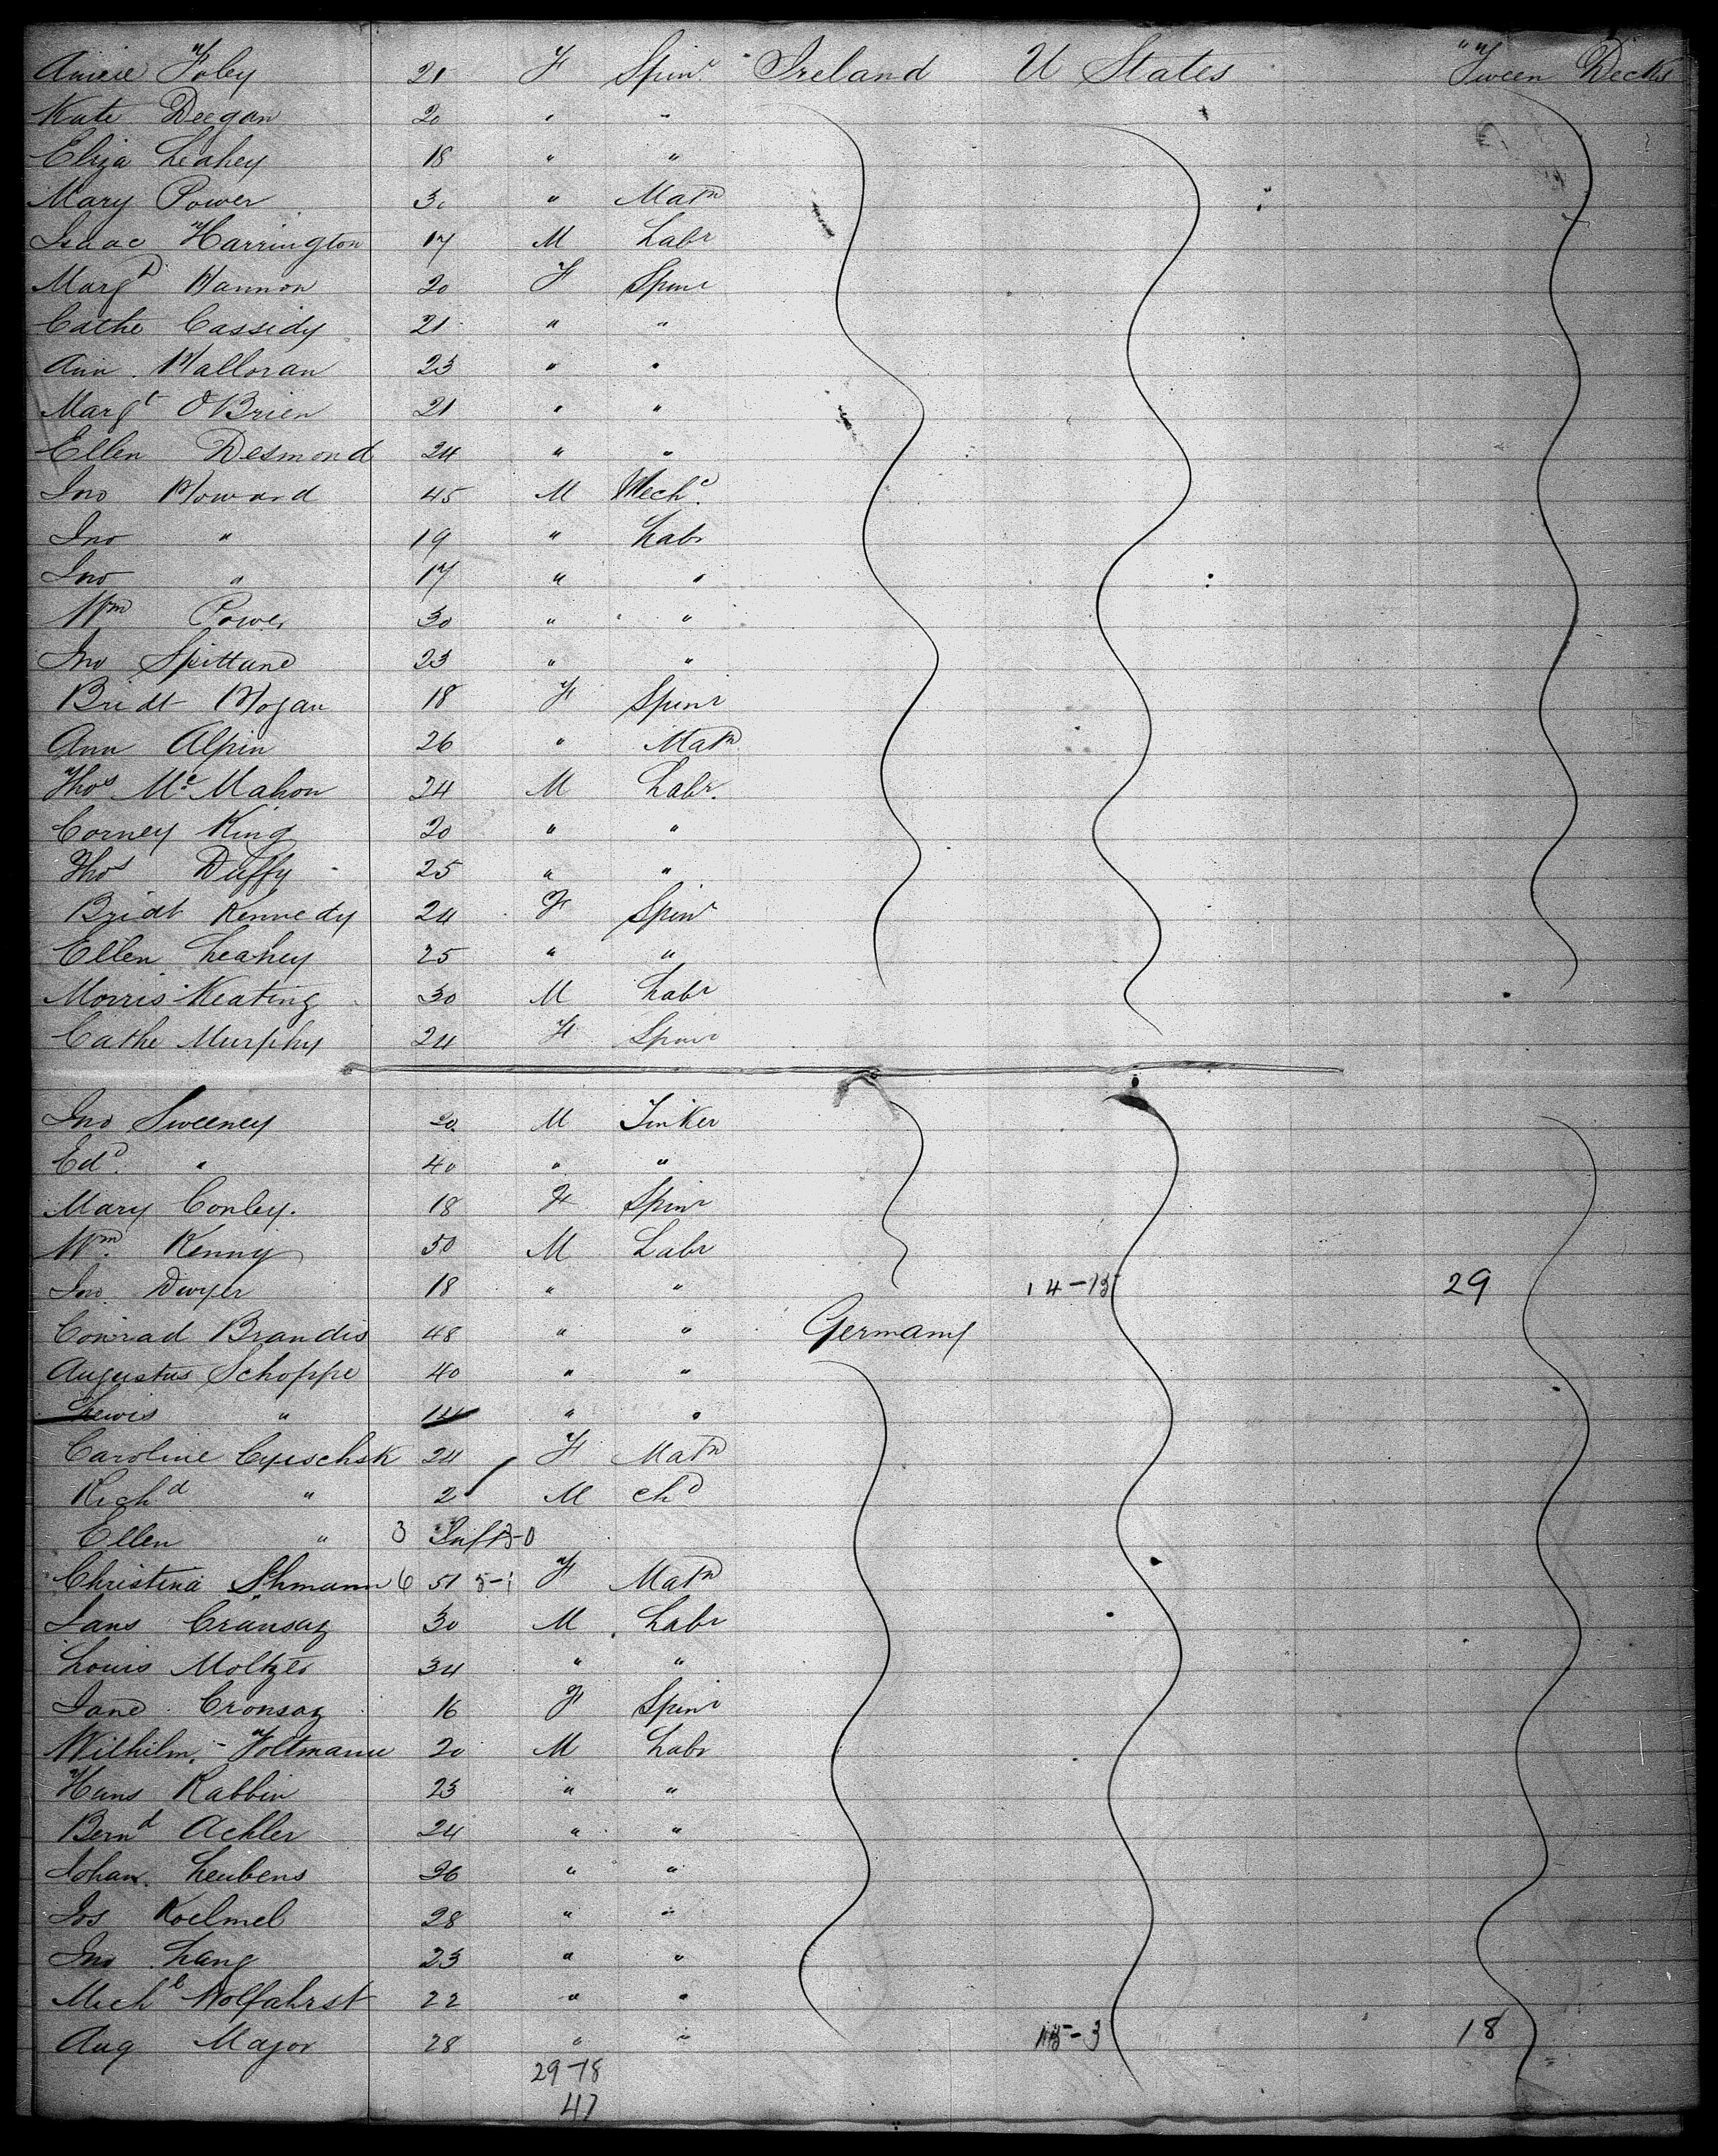 Annie Foley 21 F Spinr Ireland U States Tween Decks
Kate Deegan 20 " "
Eliza Leahey 18 " "
Mary Power 30 " Matn
Isaac Harrington 17 M Labr
Margt Hannon 20 F Spinr
Cathe Cassidy 21 " "
Ann Halloran 23 " "
Margt O'Brien 21 " "
Ellen Desmond 24 " "
Jno Howard 45 M Mechc
Jno " 19 " Labr
Jno " 17 " "
Wm Power 30 " "
Jno Spittane 23 " "
Bridt Hogan 18 F Spinr
Ann Alpin 26 " Matn
Thos Mc Mahon 24 M Labr.
Corney King 20 " "
Thos Duffy 25 " "
Bridt Kennedy 24 F Spinr
Ellen Leahey 25 " "
Morris Keating 30 M Labr
Cathe Murphy 24 F Spinr
Jno Sweeney 20 M Tinker
Edd. " 40 " "
Mary Conley. 18 F Spinr
Wm. Kenny 50 M Labr
Jno Dwyer 18 " " 14-15 29
Conrad Brandis 48 " " Germany
Augustus Schoppe 40 " "
Lewis " 14 " "
Caroline 24 F Matn
Richd " 2 M chd
Ellen " 3 Inft 3-0
Christina 6 51 5-1 F Matn
Jans Cränsaz 30 M Labr
Louis Moltzer 34 " "
Jane Cronsaz 16 F Spinr
Wilhilm. Foltmann 20 M Labr
Hans Rabbin 23 " "
Bernd Achler 24 " "
Johan. Leubens 26 " "
Jos Koelmel 28 " "
Jno Lang 23 " "
Michl Wolfahrst 22 " "
Aug Major 28 " " 15-3 18
29-18
47